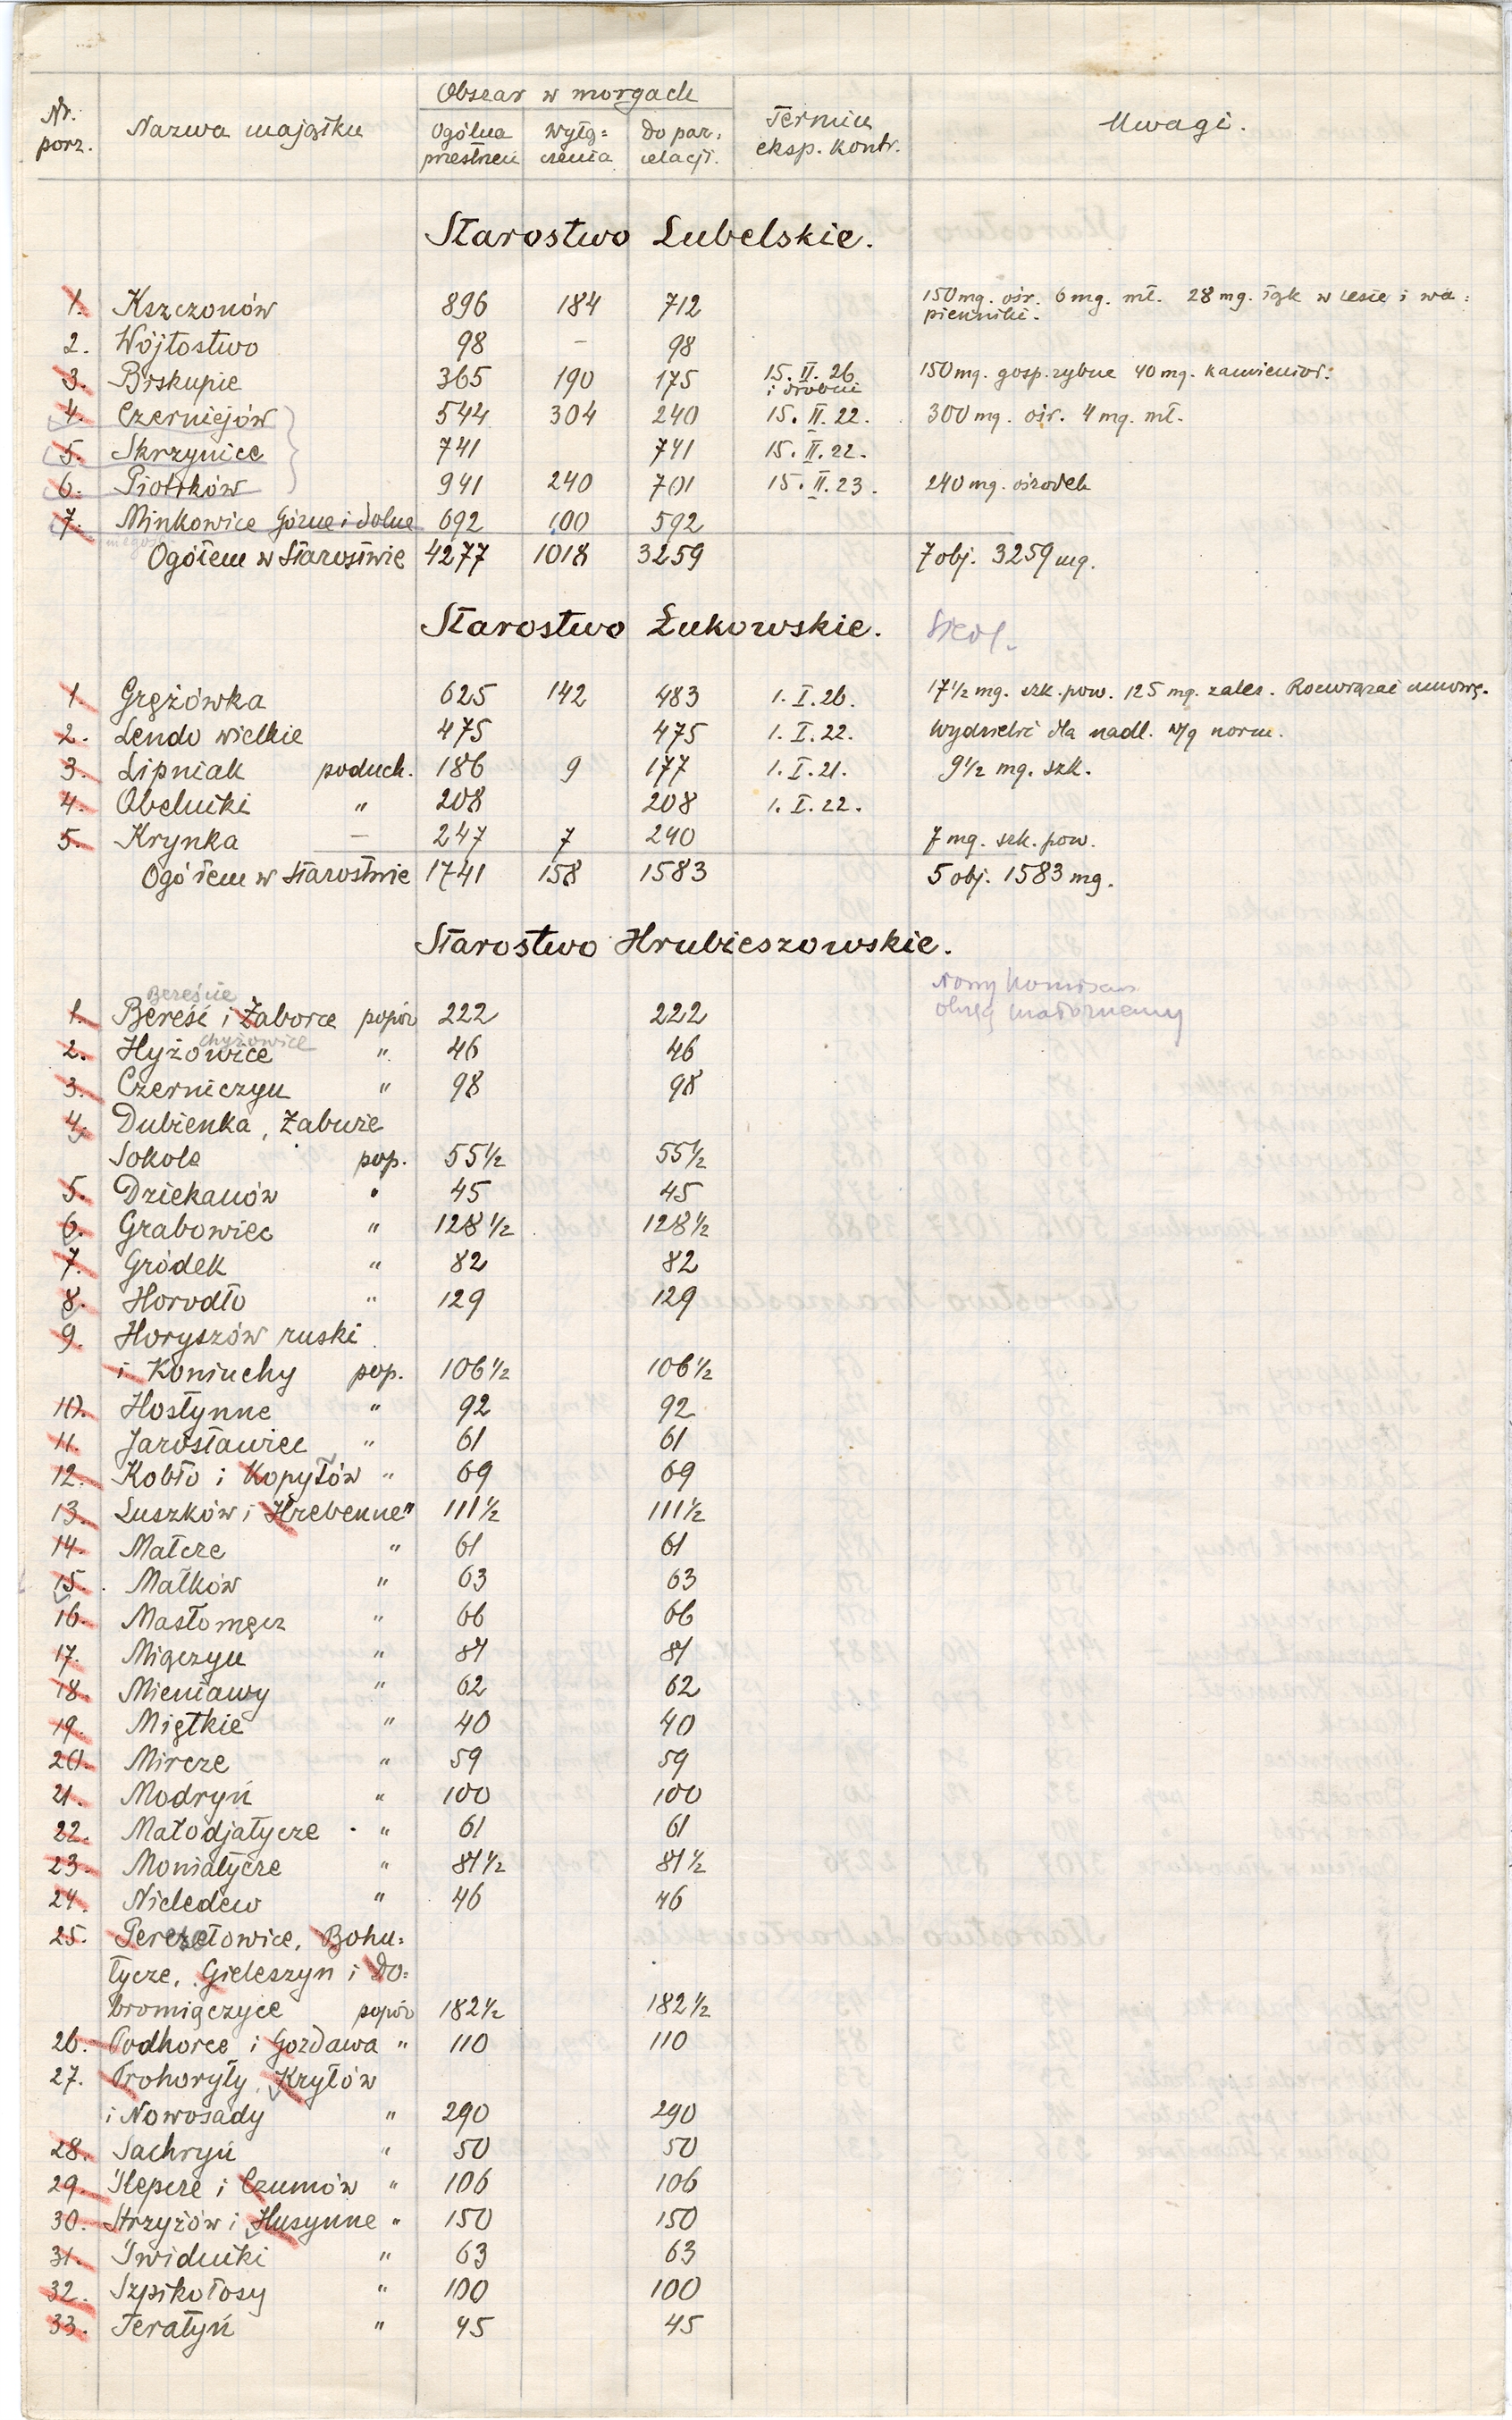 Nr. porz. Nazwa majątku Obszar w morgach Termin eksp. kontr. Uwagi.
Ogólna przestrzeń wyłą= czenia do par= celacji.
Starostwo Lubelskie.
1. Kszczonów 896 184 712 150 mg. ośr. 6 mg. mł. 28 mg. łąk w lesie i wa=
pienniki.
2. Wójtostwo 98 – 98
3. Biskupie 365 190 175 15. II. 26 150 mg. gosp. rybne 40 mg. kamienioł.
i drobni
4. Czerniejów 544 304 240 15. II. 22. 300 mg. ośr. 4 mg. mł.
5. Skrzynice 741 741 15. II. 22.
6. Piotrków 941 240 701 15. II. 23. 240 mg. ośrodek
7. Minkowice Górne i dolne 692 100 592
Ogółem w Starostwie 4277 1018 3259 7 obj. 3259 mg.
Starostwo Łukowskie. Siedl.
1. Gręzówka 625 142 483 1. I. 26. 17 1/2 mg. szk. pow. 125 mg. zales. Rozwiązać umowę.
2. Lendo wielkie 475 475 1. I. 22. Wydzielić dla nadl. w/g norm.
3. Lipniak poduch. 186 9 177 1. I. 21. 9 1/2 mg. szk.
4. Obelniki " 208 208 1. I. 22.
5. Krynka – 247 7 240 7 mg. szk. pow.
Ogółem w Starostwie 1741 158 1583 5 obj. 1583 mg.
Starostwo Hrubieszowskie.
Nowy komisarz
Bereście
1. Bereść i Zaborce popów 222 222 okręg
Chyżowice
2. Hyżowice " 46 46
3. Czerniczyn " 98 98
4. Dubienka, Zabuże
Sokole pop. 55 1/2 55 1/2
5. Dziekanów " 45 45
6. Grabowiec " 128 1/2 128 1/2
7. Gródek " 82 82
8. Horodło " 129 129
9. Horyszów ruski
i Koniuchy pop. 106 1/2 106 1/2
10. Hostynne " 92 92
11. Jarosławiec " 61 61
12. Kobło i Kopyłów " 69 69
13. Łuszków i Hrebenne " 111 1/2 111 1/2
14. Matcze " 61 61
15. Małków " 63 63
16. Masłomęcz " 66 66
17. Miączyn " 81 81
18. Mieniawy " 62 62
19. Miętkie " 40 40
20. Mircze " 59 59
21. Modryń " 100 100
22. Małodjatycze " 61 61
23. Moniatycze " 81 1/2 81 1/2
24. Nieledew " 46 46
25. Pereszłowice, Bohu=
tycze, Gieleszyn i Do=
bromięczyce popów 182 1/2 182 1/2
26. Podhorce i Gozdawa " 110 110
27. Prohoryły, Kryłów
i Nowosady " 290 290
28. Sachryń " 50 50
29. Ślepcze i Czumów " 106 106
30. Strzyżów i Husynne " 150 150
31. Świdniki " 63 63
32. Szpikołosy " 100 100
33. Teratyń " 45 45